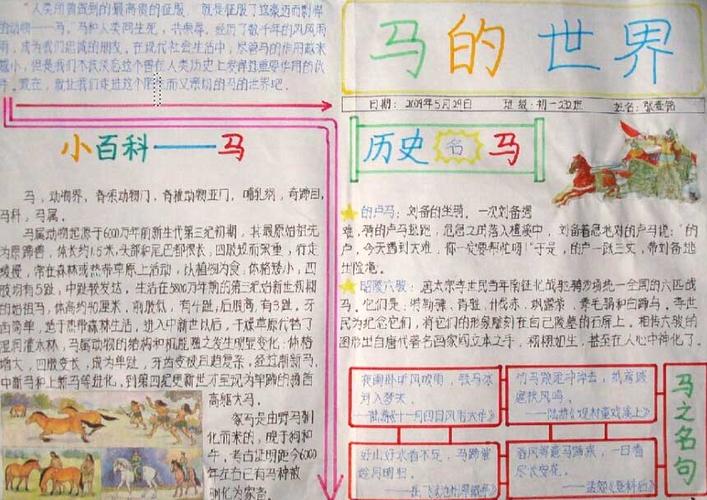 "人类所曾做到的最高贵的征服,就是征服了这豪迈而剽悍
的动物——马。马和人类同生死,共荣辱。经历了数千年的风风雨
雨,成为我们忠诚的朋友。在现代社会生活中,尽管马的作用越来
越小,但是我们不该忘记这个曾在人类历史上发挥过重要作用的伙
伴。现在,就让我们走进这个而又亲切的马的世界吧。
马的世界
日期:2009年5月29日 班级:初一232班 姓名:
小百科——马
马,动物界,脊索动物门,脊椎动物亚门,哺乳纲,奇蹄目,
马科,马属。
马属动物起源于6000万年前新生代第三纪初期,其最原始祖先
为原蹄兽,体长约1.5米,头部和尾巴都很长,四肢短而笨重,行走
缓慢,常在森林或热带草原上活动,以植物为食,体格矮小,四
肢均有5趾,中趾较发达。生活在5800万年前的第三纪始新世初期
的始祖马,体高约40厘米,前肢低,有4趾,后肢高,有3趾。牙
齿简单,适于热带森林生活。进入中新世以后,干燥草原代替了
湿润灌木林,马属动物的机能和结构随之发生明显变化:体格
增大,四肢变长,成为单趾,牙齿变硬且趋复杂。经过渐新马、
中新马和上新马等进化,到第四纪更新世才呈现为单蹄的扬首
高躯大马。
家马是由野马驯
化而来的,晚于狗和
牛,考古证明距今6000
年左右已有马种被
驯化为家畜。
历史名马
的卢马:刘备的坐骑。一次刘备遇
难,骑的卢马逃跑,危急之时落入檀溪中,刘备着急地对的卢马说:"的
卢,今天遇到大难,你一定要帮忙呀!"于是,的卢一跃三丈,带刘备逃
出险境。
昭陵六骏:唐太宗李世民当年南征北战驰骋沙场统一全国的六匹战
马。它们是:特勒骠、青骓、什伐赤、飒露紫、拳毛騧和白蹄乌。李世
民为纪念它们,将它们的形象雕刻在自己陵墓的石屏上。相传六骏的
图形出自唐代著名画家阎立本之手,栩栩如生,甚至在人心中神化了。
夜阑卧听风吹雨,铁马冰
河入梦来。
——陆游《十一月四日风雨大作》
竹马踉跄冲淖去,纸鸢跋
扈挟风鸣。
——陆游《观村童戏溪上》
好山好水看不足,马蹄催
趁月明归。
——岳飞《池州翠微亭》
春风得意马蹄疾,一日看
尽长安花。
——孟郊《登科后》
马之名句